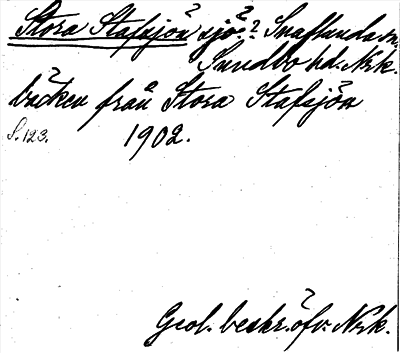 Stora Stafsjön sjö? Snaflunda sn.
Sundbo hd. Nrk.
bäcken från Stora Stafsjön
S. 123. 1902.
Geol. beskr. öfv. Nrk.